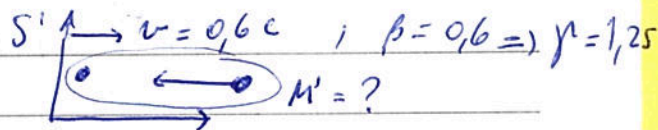 S' → v = 0,6 c ; β = 0,6 ⇒ γ = 1,25
M' = ?